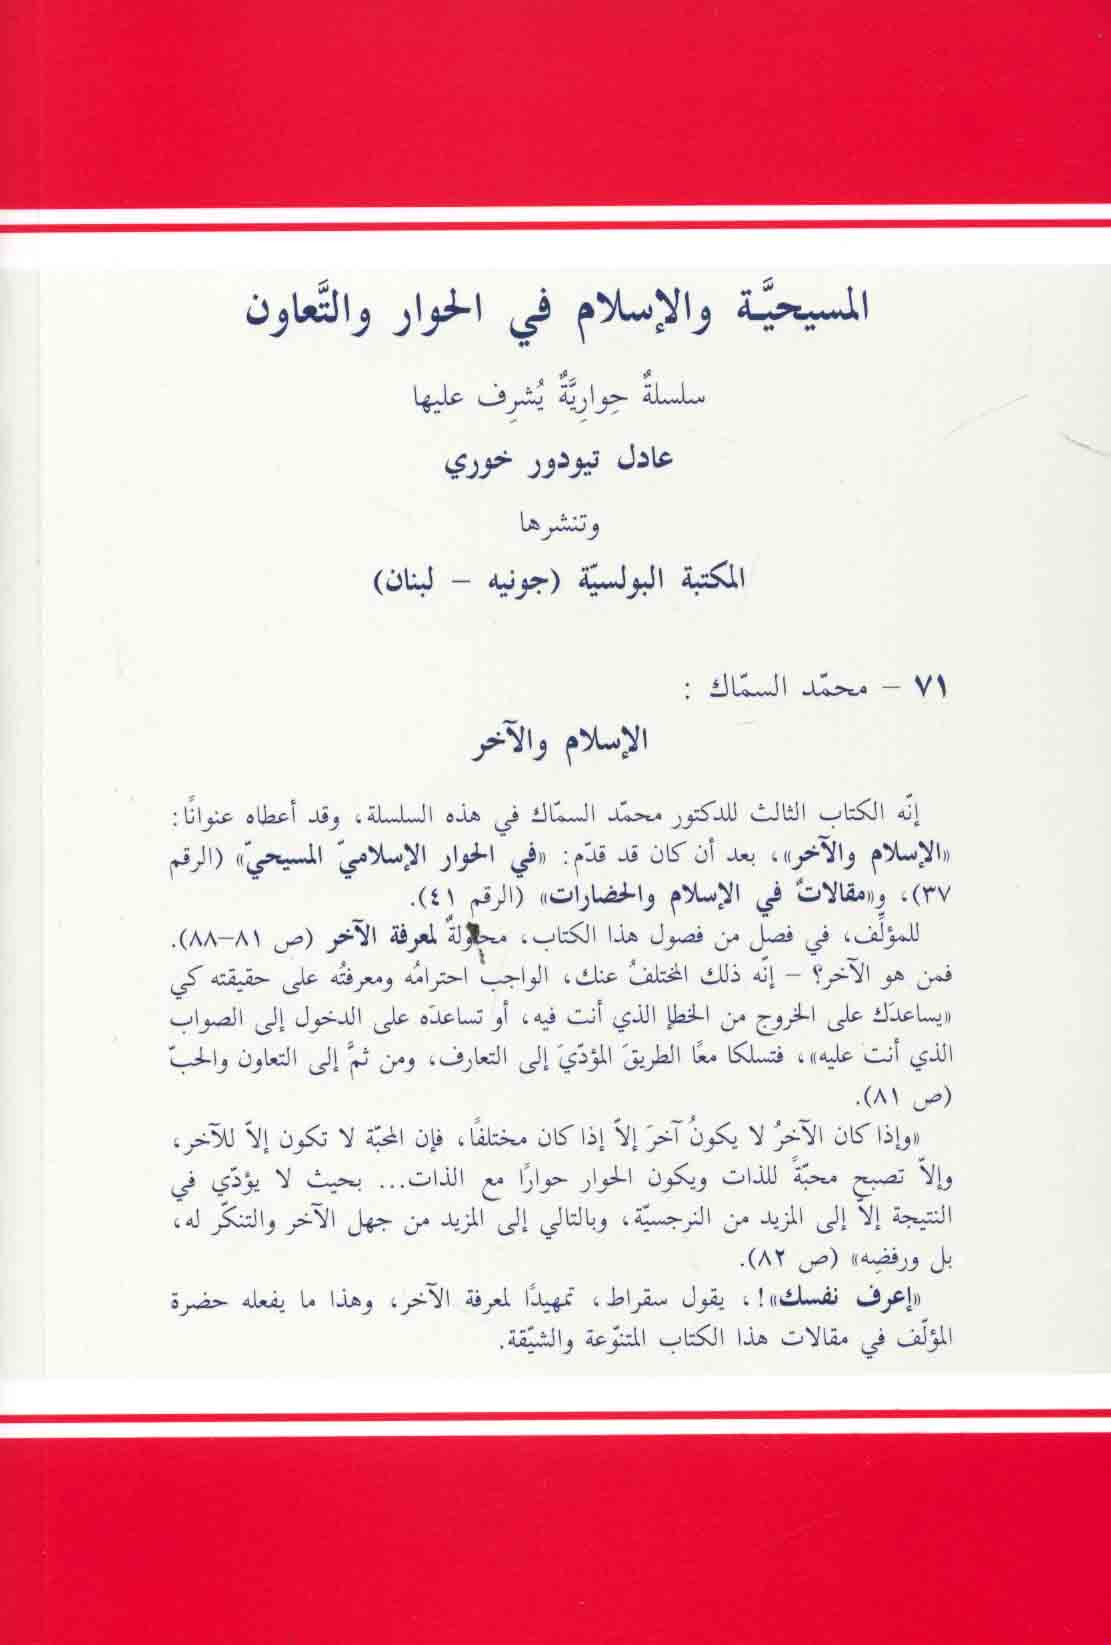 المسيحيَّة والإسلام في الحوار والتَّعاون
سلسلةٌ حِوارِيَّةٌ يُشرِف عليها
عادل تيودور خوري
وتنشرها
المكتبة البولسيّة (جونيه – لبنان)
٧١ – محمّد السمّاك :
الإسلام والآخر
إنّه الكتاب الثالث للدكتور محمّد السمّاك في هذه السلسلة، وقد أعطاه عنوانًا:
«الإسلام والآخر»، بعد أن كان قد قدّم: «في الحوار الإسلاميّ المسيحيّ» (الرقم
٣٧)، و«مقالاتٌ في الإسلام والحضارات» (الرقم ٤١).
للمؤلِّف، في فصل من فصول هذا الكتاب، محاولةٌ لمعرفة الآخر (ص ٨١–٨٨).
فمن هو الآخر؟ – إنّه ذلك المختلفُ عنك، الواجب احترامُه ومعرفتُه على حقيقته كي
«يساعدَك على الخروج من الخطإ الذي أنت فيه، أو تساعدَه على الدخول إلى الصواب
الذي أنت عليه»، فتسلكا معًا الطريقَ المؤدّيَ إلى التعارف، ومن ثمَّ إلى التعاون والحبّ
(ص ٨١).
«وإذا كان الآخرُ لا يكونُ آخرَ إلاّ إذا كان مختلفًا، فإن المحبّة لا تكون إلاّ للآخر،
وإلاّ تصبح محبّةً للذات ويكون الحوار حوارًا مع الذات... بحيث لا يؤدّي في
النتيجة إلاّ إلى المزيد من النرجسيّة، وبالتالي إلى المزيد من جهل الآخر والتنكّر له،
بل ورفضِه» (ص ٨٢).
«إعرف نفسك»!، يقول سقراط، تمهيدًا لمعرفة الآخر، وهذا ما يفعله حضرة
المؤلّف في مقالات هذا الكتاب المتنوّعة والشيّقة.